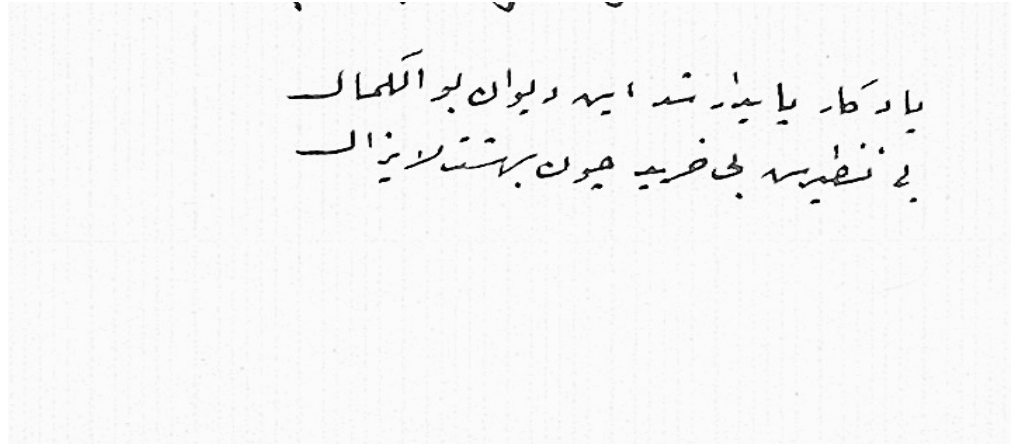 یادگار پایدار شد این دیوان بو الکمال
بی نظیرس بی فرید چون بهشت لا یزال